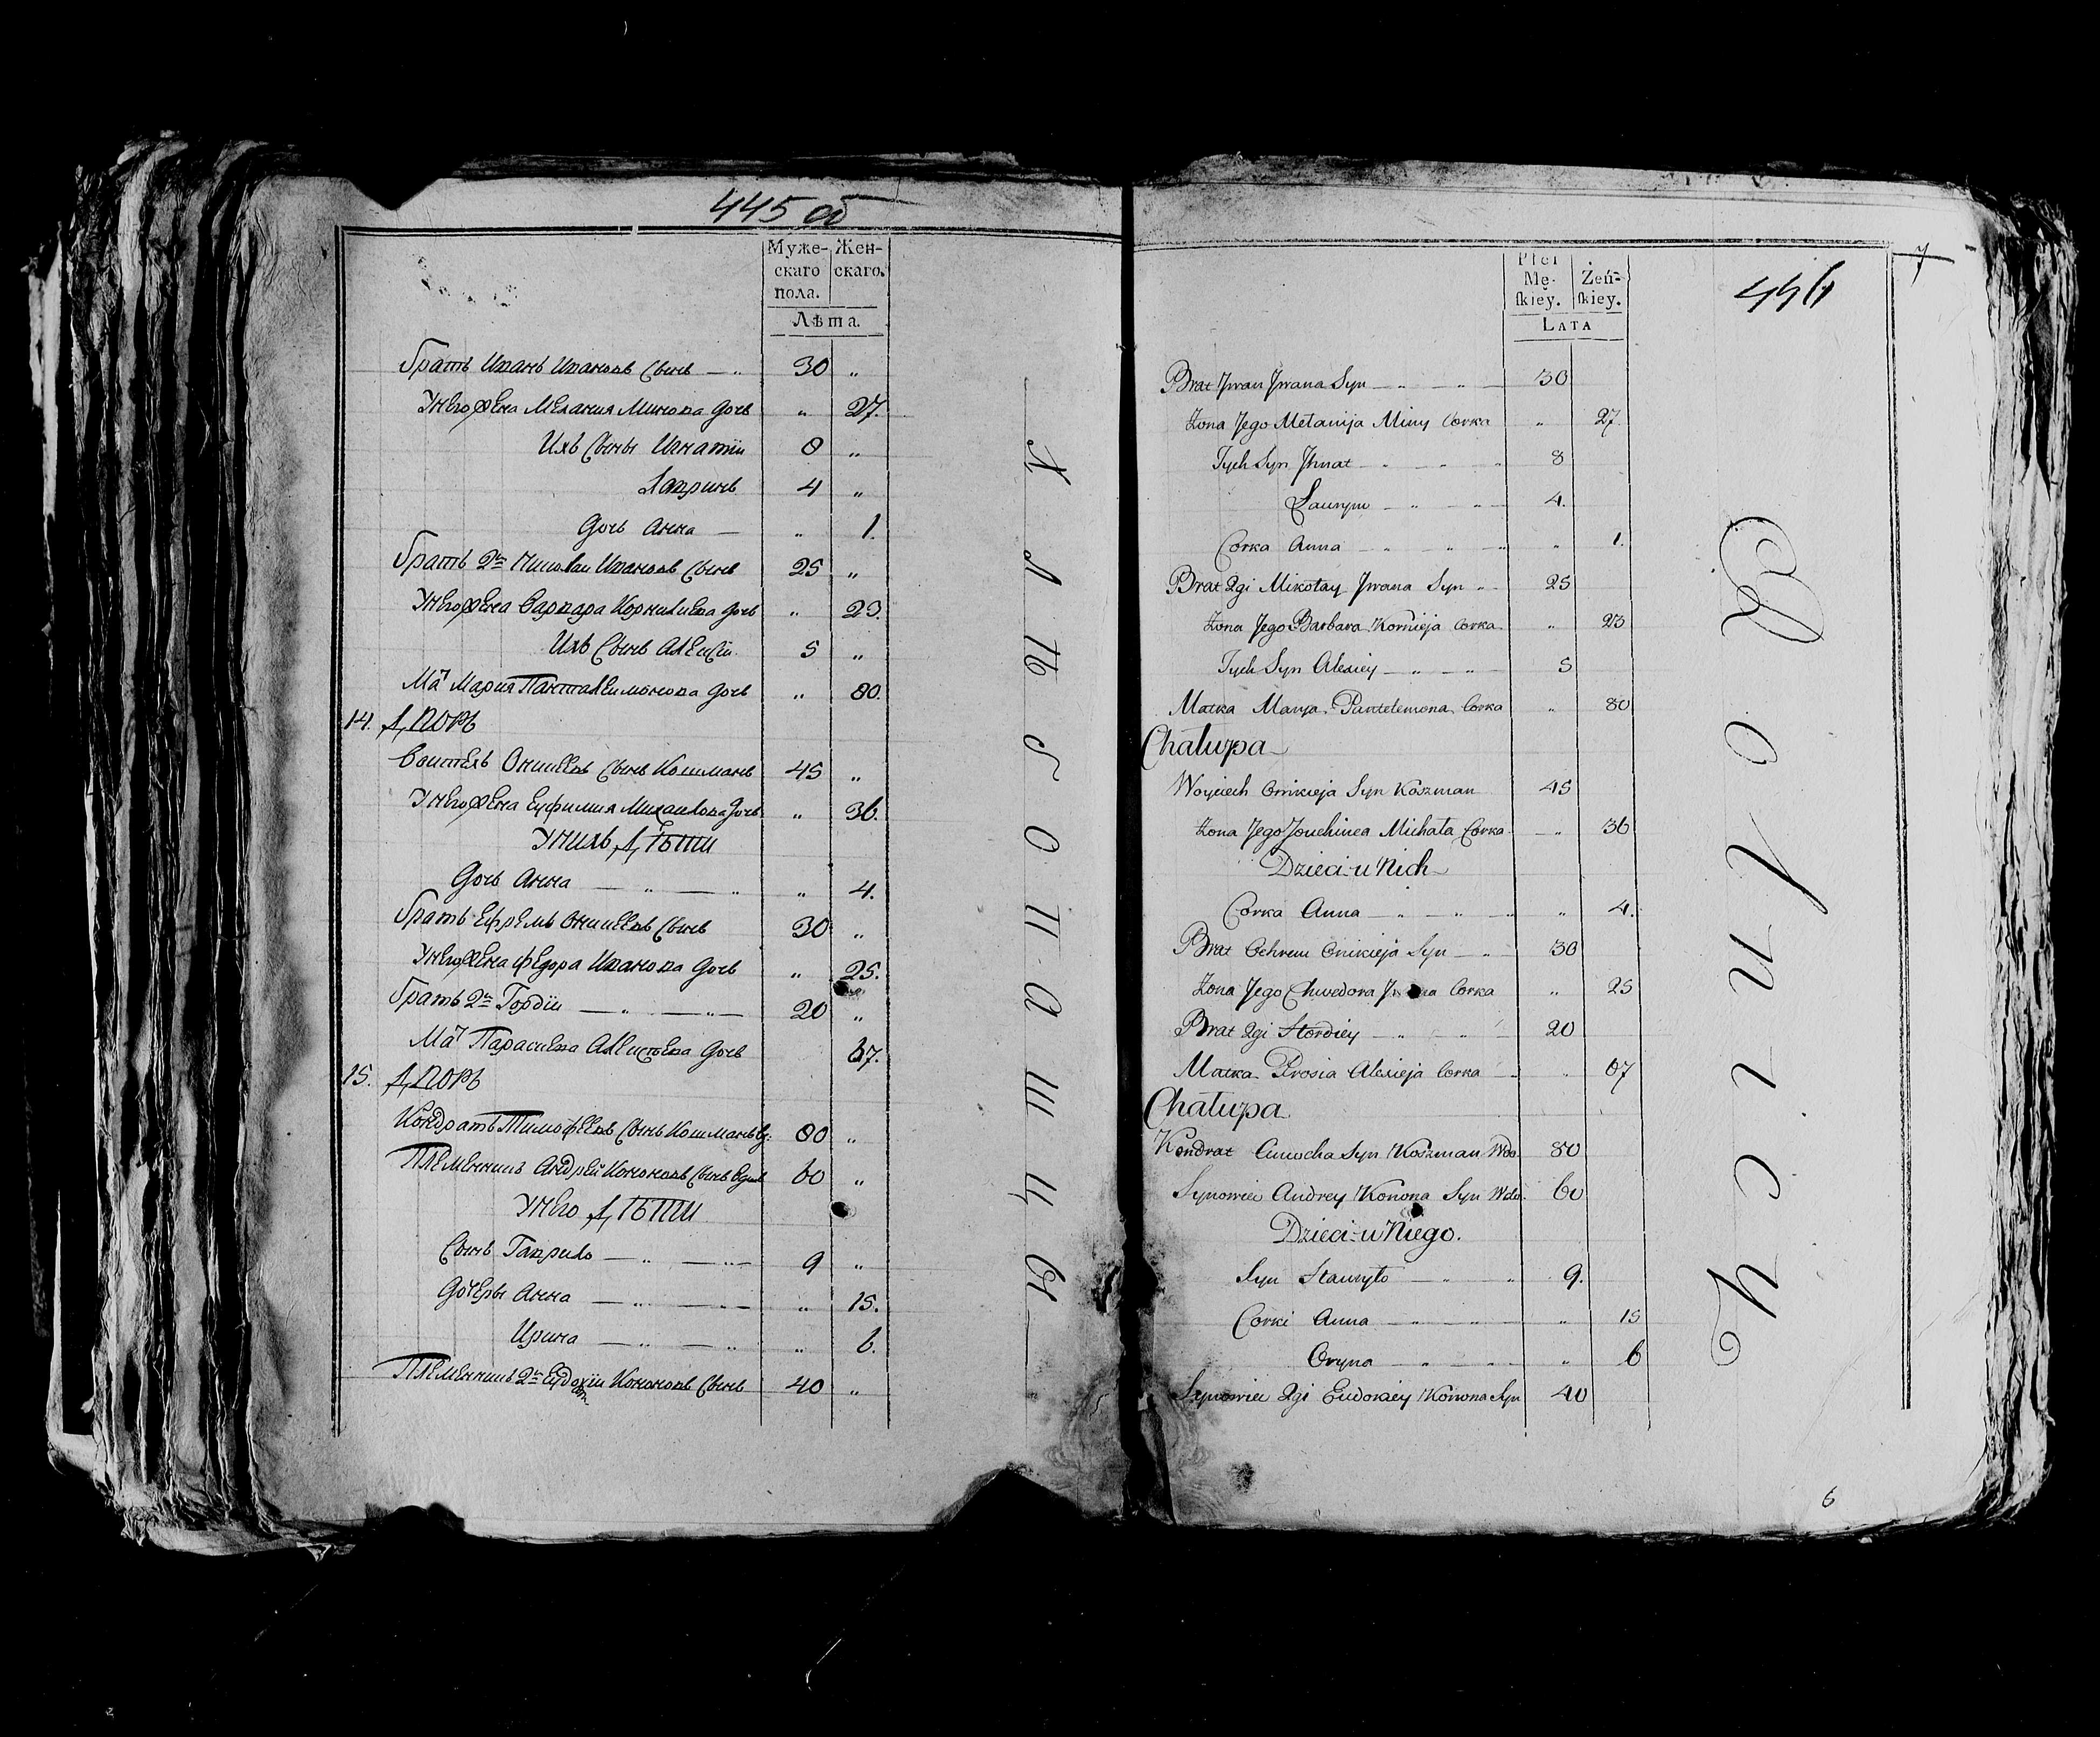 445 об
Муже-
скаго
пола.
Жен-
скаго.
Лѣта.
братъ Иванъ Ивановъ сынъ 30 „
У него жена Мелания Минова дочь „ 27.
Ихъ сыны Игнатiи 8 „
Лавринъ 4 „
дочь Анна „ 1.
братъ 2й Николаи Ивановъ сынъ 25 „
У него жена Варвара Корнилиева дочь „ 23.
Ихъ сынъ Алексiи 5 „
Мать Мария Панталеимонова дочь „ 80.
14. Дворъ
Воитехъ Оникеевъ сынъ Кошманъ 45 „
У него жена Еуфимия Михаилова дочь „ 36.
У нихъ Дѣти
дочь Анна „ 4.
братъ Ефремъ Оникеевъ сынъ 30 „
У него жена Федора Иванова дочь „ 25.
братъ 2й Гордiи 20 „
Мать Парасиева Алексiева дочь 67.
15. Дворъ
Кондратъ Тимофеевъ сынъ Кошманъ вд. 80 „
Племенникъ Андрей Кононовъ сынъ вдовъ 60 „
У него Дѣти
сынъ Гаврило 9 „
дочеры Анна „ 15.
Ирина „ 6.
Племенникъ 2й Еудокiи Кононовъ сынъ 40 „
Дѣлопашцы
7
446
Płci
Mę-
ſkiey.
Żeń-
ſkiey.
LATA
Brat Jwan Jwana Syn 30
Żona Jego Mełanija Miny Corka „ 27.
Tych Syn Jhnat 8
Ławryn 4.
Corka Anna „ 1.
Brat 2gi Mikołay Jwana Syn 25
Żona Jego Barbara Kornieja Corka „ 23
Tych Syn Alexiey 5
Matka Marya Pantelemona Corka „ 80
Chałupa
Woyciech Onikieja Syn Koszman 45
Żona Jego Jouchinea Michała Corka „ 36
Dzieci u Nich
Corka Anna „ 4.
Brat Ochrem Onikieja Syn 30
Żona Jego Chwedora Jwana Corka „ 25
Brat 2gi Hordiey 20
Matka Prosia Alexieja Corka „ 67
Chałupa
Kondrat Cimocha Syn Koszman Wdo. 80
Synowiec Andrey Konona Syn Wdo. 60
Dzieci u Niego.
Syn Hawryło 9.
Corki Anna „ 15
Oryna „ 6
Synowiec 2gi Eudokiey Konona Syn 40
Rolnicy
6